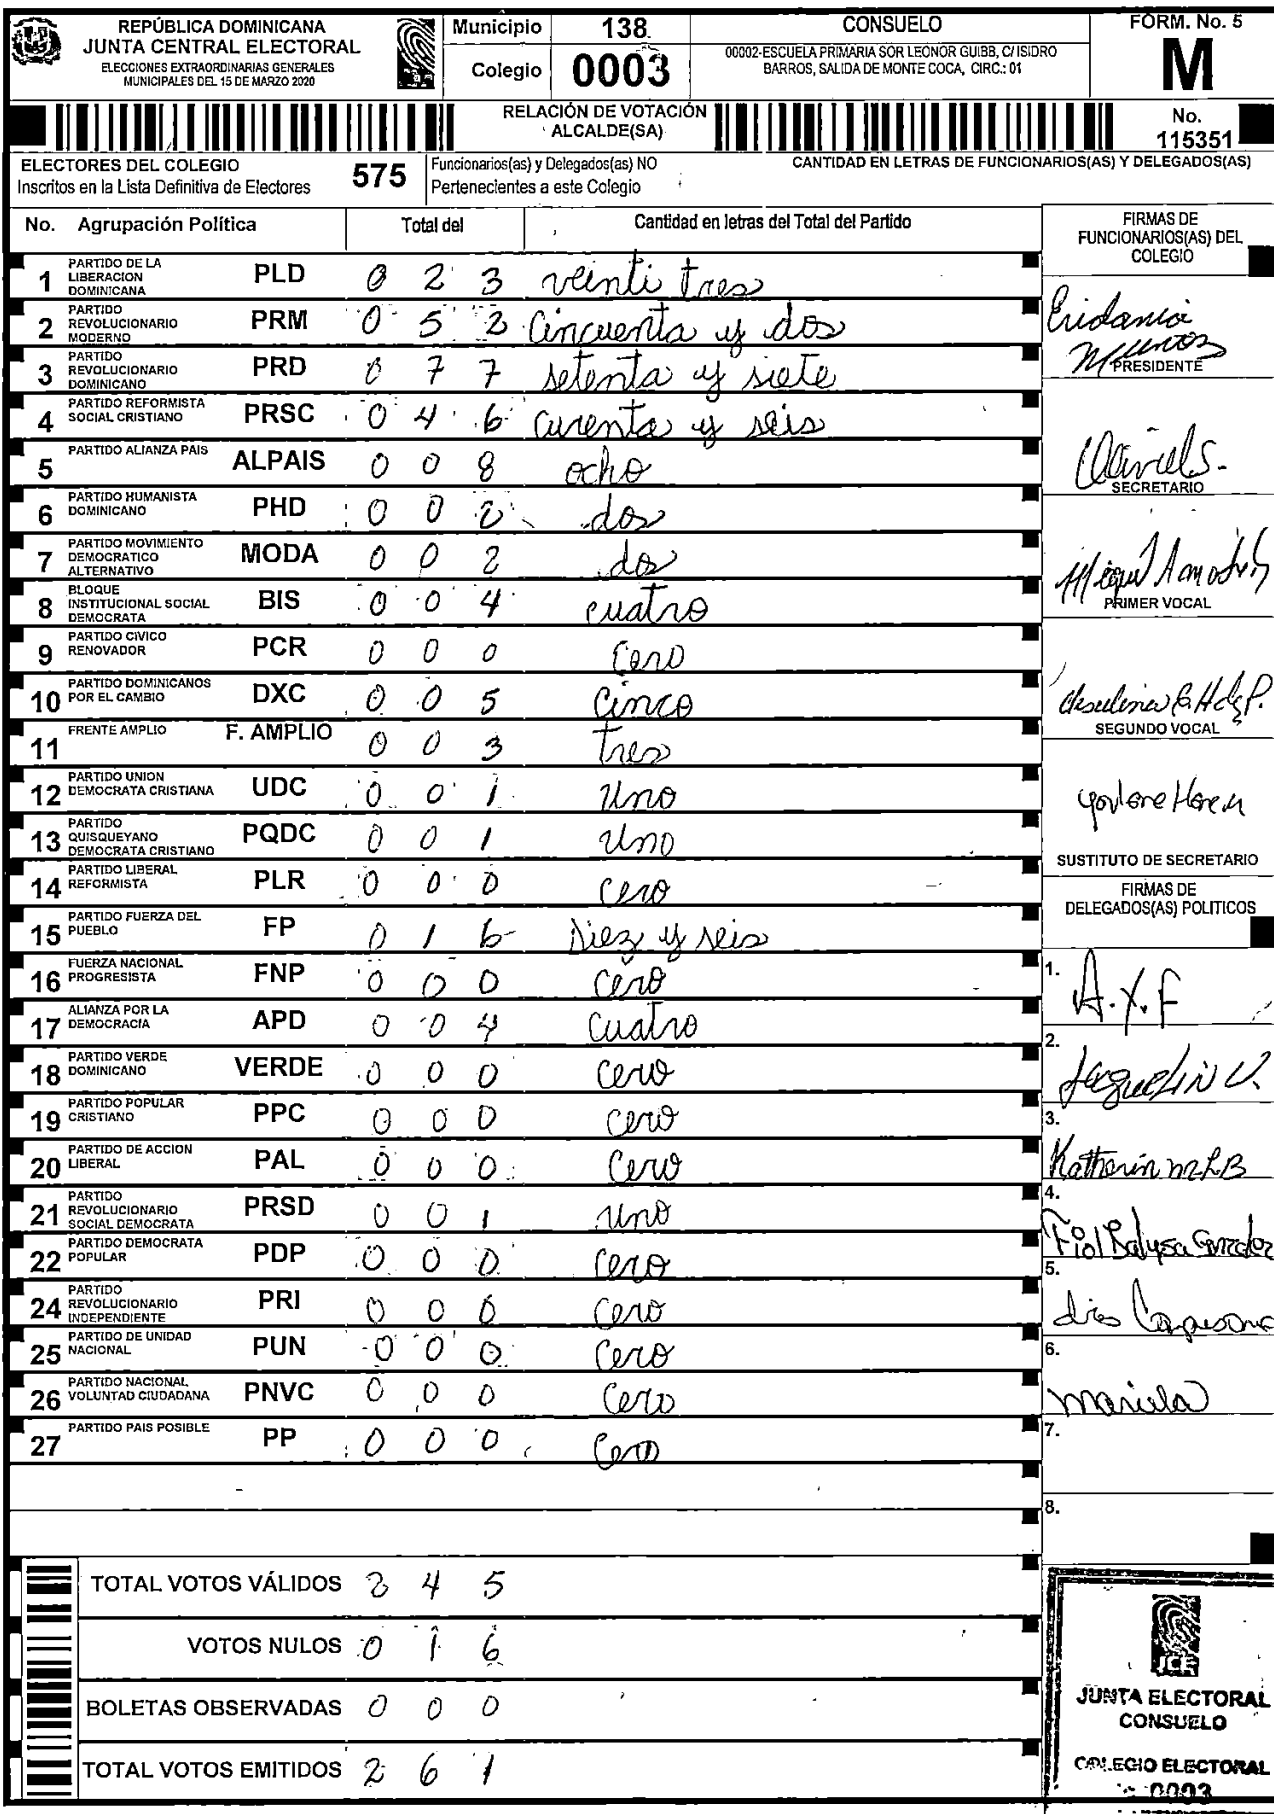 REPÚBLICA DOMINICANA
JUNTA CENTRAL ELECTORAL
ELECCIONES EXTRAORDINARIAS GENERALES
MUNICIPALES DEL 15 DE MARZO 2020
Municipio 138
Colegio 0003
CONSUELO
00002-ESCUELA PRIMARIA SOR LEONOR GUIBB, C/ ISIDRO
BARROS, SALIDA DE MONTE COCA, CIRC.: 01
FORM. No. 5
M
RELACIÓN DE VOTACIÓN
ALCALDE(SA)
No.
115351
ELECTORES DEL COLEGIO
Inscritos en la Lista Definitiva de Electores 575
Funcionarios(as) y Delegados(as) NO
Pertenecientes a este Colegio
CANTIDAD EN LETRAS DE FUNCIONARIOS(AS) Y DELEGADOS(AS)
No. Agrupación Política Total del Cantidad en letras del Total del Partido
1 PARTIDO DE LA LIBERACION DOMINICANA PLD 0 2 3 veinti tres
2 PARTIDO REVOLUCIONARIO MODERNO PRM 0 5 2 Cincuenta y dos
3 PARTIDO REVOLUCIONARIO DOMINICANO PRD 0 7 7 setenta y siete
4 PARTIDO REFORMISTA SOCIAL CRISTIANO PRSC 0 4 6 Curenta y seis
5 PARTIDO ALIANZA PAIS ALPAIS 0 0 8 ocho
6 PARTIDO HUMANISTA DOMINICANO PHD 0 0 2 dos
7 PARTIDO MOVIMIENTO DEMOCRATICO ALTERNATIVO MODA 0 0 2 dos
8 BLOQUE INSTITUCIONAL SOCIAL DEMOCRATA BIS 0 0 4 cuatro
9 PARTIDO CIVICO RENOVADOR PCR 0 0 0 Cero
10 PARTIDO DOMINICANOS POR EL CAMBIO DXC 0 0 5 Cinco
11 FRENTE AMPLIO F. AMPLIO 0 0 3 tres
12 PARTIDO UNION DEMOCRATA CRISTIANA UDC 0 0 1 Uno
13 PARTIDO QUISQUEYANO DEMOCRATA CRISTIANO PQDC 0 0 1 Uno
14 PARTIDO LIBERAL REFORMISTA PLR 0 0 0 Cero
15 PARTIDO FUERZA DEL PUEBLO FP 0 1 6 Diez y seis
16 FUERZA NACIONAL PROGRESISTA FNP 0 0 0 Cero
17 ALIANZA POR LA DEMOCRACIA APD 0 0 4 Cuatro
18 PARTIDO VERDE DOMINICANO VERDE 0 0 0 Cero
19 PARTIDO POPULAR CRISTIANO PPC 0 0 0 Cero
20 PARTIDO DE ACCION LIBERAL PAL 0 0 0 Cero
21 PARTIDO REVOLUCIONARIO SOCIAL DEMOCRATA PRSD 0 0 1 Uno
22 PARTIDO DEMOCRATA POPULAR PDP 0 0 0 Cero
24 PARTIDO REVOLUCIONARIO INDEPENDIENTE PRI 0 0 0 Cero
25 PARTIDO DE UNIDAD NACIONAL PUN 0 0 0 Cero
26 PARTIDO NACIONAL VOLUNTAD CIUDADANA PNVC 0 0 0 Cero
27 PARTIDO PAIS POSIBLE PP 0 0 0 Cero
TOTAL VOTOS VÁLIDOS 2 4 5
VOTOS NULOS 0 1 6
BOLETAS OBSERVADAS 0 0 0
TOTAL VOTOS EMITIDOS 2 6 1
FIRMAS DE
FUNCIONARIOS(AS) DEL
COLEGIO
Eridania
Munoz
PRESIDENTE
SECRETARIO
Miguel
PRIMER VOCAL
SEGUNDO VOCAL
SUSTITUTO DE SECRETARIO
FIRMAS DE
DELEGADOS(AS) POLITICOS
1. A.Y.F
2. Jacquelin V.
3. Katherin
4.
5.
6. Mariela
7.
8.
JCE
JUNTA ELECTORAL
CONSUELO
COLEGIO ELECTORAL
0003